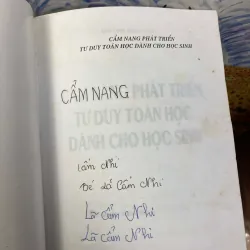 CẨM NANG PHÁT TRIỂN
TƯ DUY TOÁN HỌC DÀNH CHO HỌC SINH
CẨM NANG PHÁT TRIỂN
TƯ DUY TOÁN HỌC
DÀNH CHO HỌC SINH
Cẩm Nhi
Bé Lã Cẩm Nhi
Lã Cẩm Nhi
Lã Cẩm Nhi